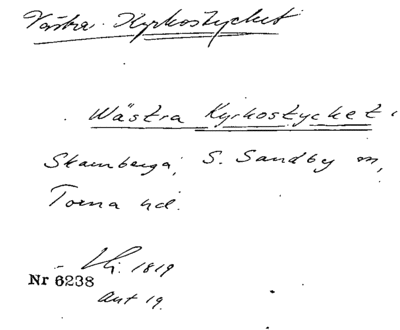 Västra Kyrkostycket
Wästra Kyrkostycket i
Skamberga, S. Sandby sn,
Torna hd.
1819
Nr 6238
akt 19.